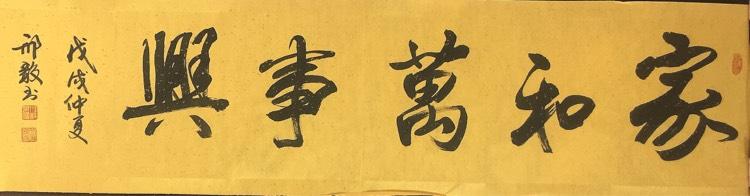 家和萬事興
戊戌仲夏
邢敬书